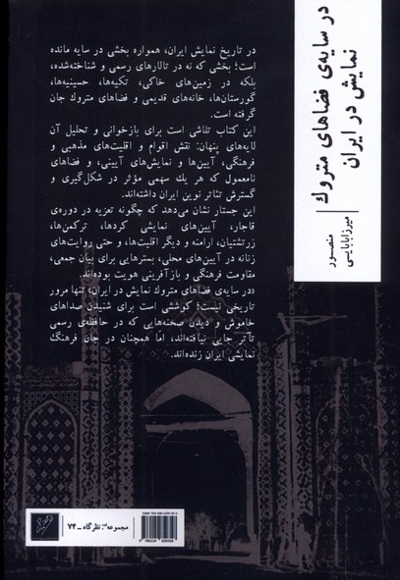 در سایه‌ی فضاهای متروک
نمایش در ایران
منصور
میرزابابایی
در تاریخ نمایش ایران، همواره بخشی در سایه مانده
است؛ بخشی که نه در تالارهای رسمی و شناخته‌شده،
بلکه در زمین‌های خاکی، تکیه‌ها، حسینیه‌ها،
گورستان‌ها، خانه‌های قدیمی و فضاهای متروک جان
گرفته است.
این کتاب تلاشی است برای بازخوانی و تحلیل آن
لایه‌های پنهان: نقش اقوام و اقلیت‌های مذهبی و
فرهنگی، آیین‌ها و نمایش‌های آیینی، و فضاهای
نامعمول که هر یک سهمی مؤثر در شکل‌گیری و
گسترش تئاتر نوین ایران داشته‌اند.
این جستار نشان می‌دهد که چگونه تعزیه در دوره‌ی
قاجار، آیین‌های نمایشی کردها، ترکمن‌ها،
زرتشتیان، ارامنه و دیگر اقلیت‌ها، و حتی روایت‌های
زنانه در آیین‌های محلی، بسترهایی برای بیان جمعی،
مقاومت فرهنگی و بازآفرینی هویت بوده‌اند.
«در سایه‌ی فضاهای متروک نمایش در ایران» تنها مرور
تاریخی نیست؛ کوششی است برای شنیدن صداهای
خاموش و دیدن صحنه‌هایی که در حافظه‌ی رسمی
تآتر جایی نیافته‌اند، اما همچنان در جان فرهنگ
نمایشی ایران زنده‌اند.
مجموعه‌ی: نظرگاه ــ ۷۴